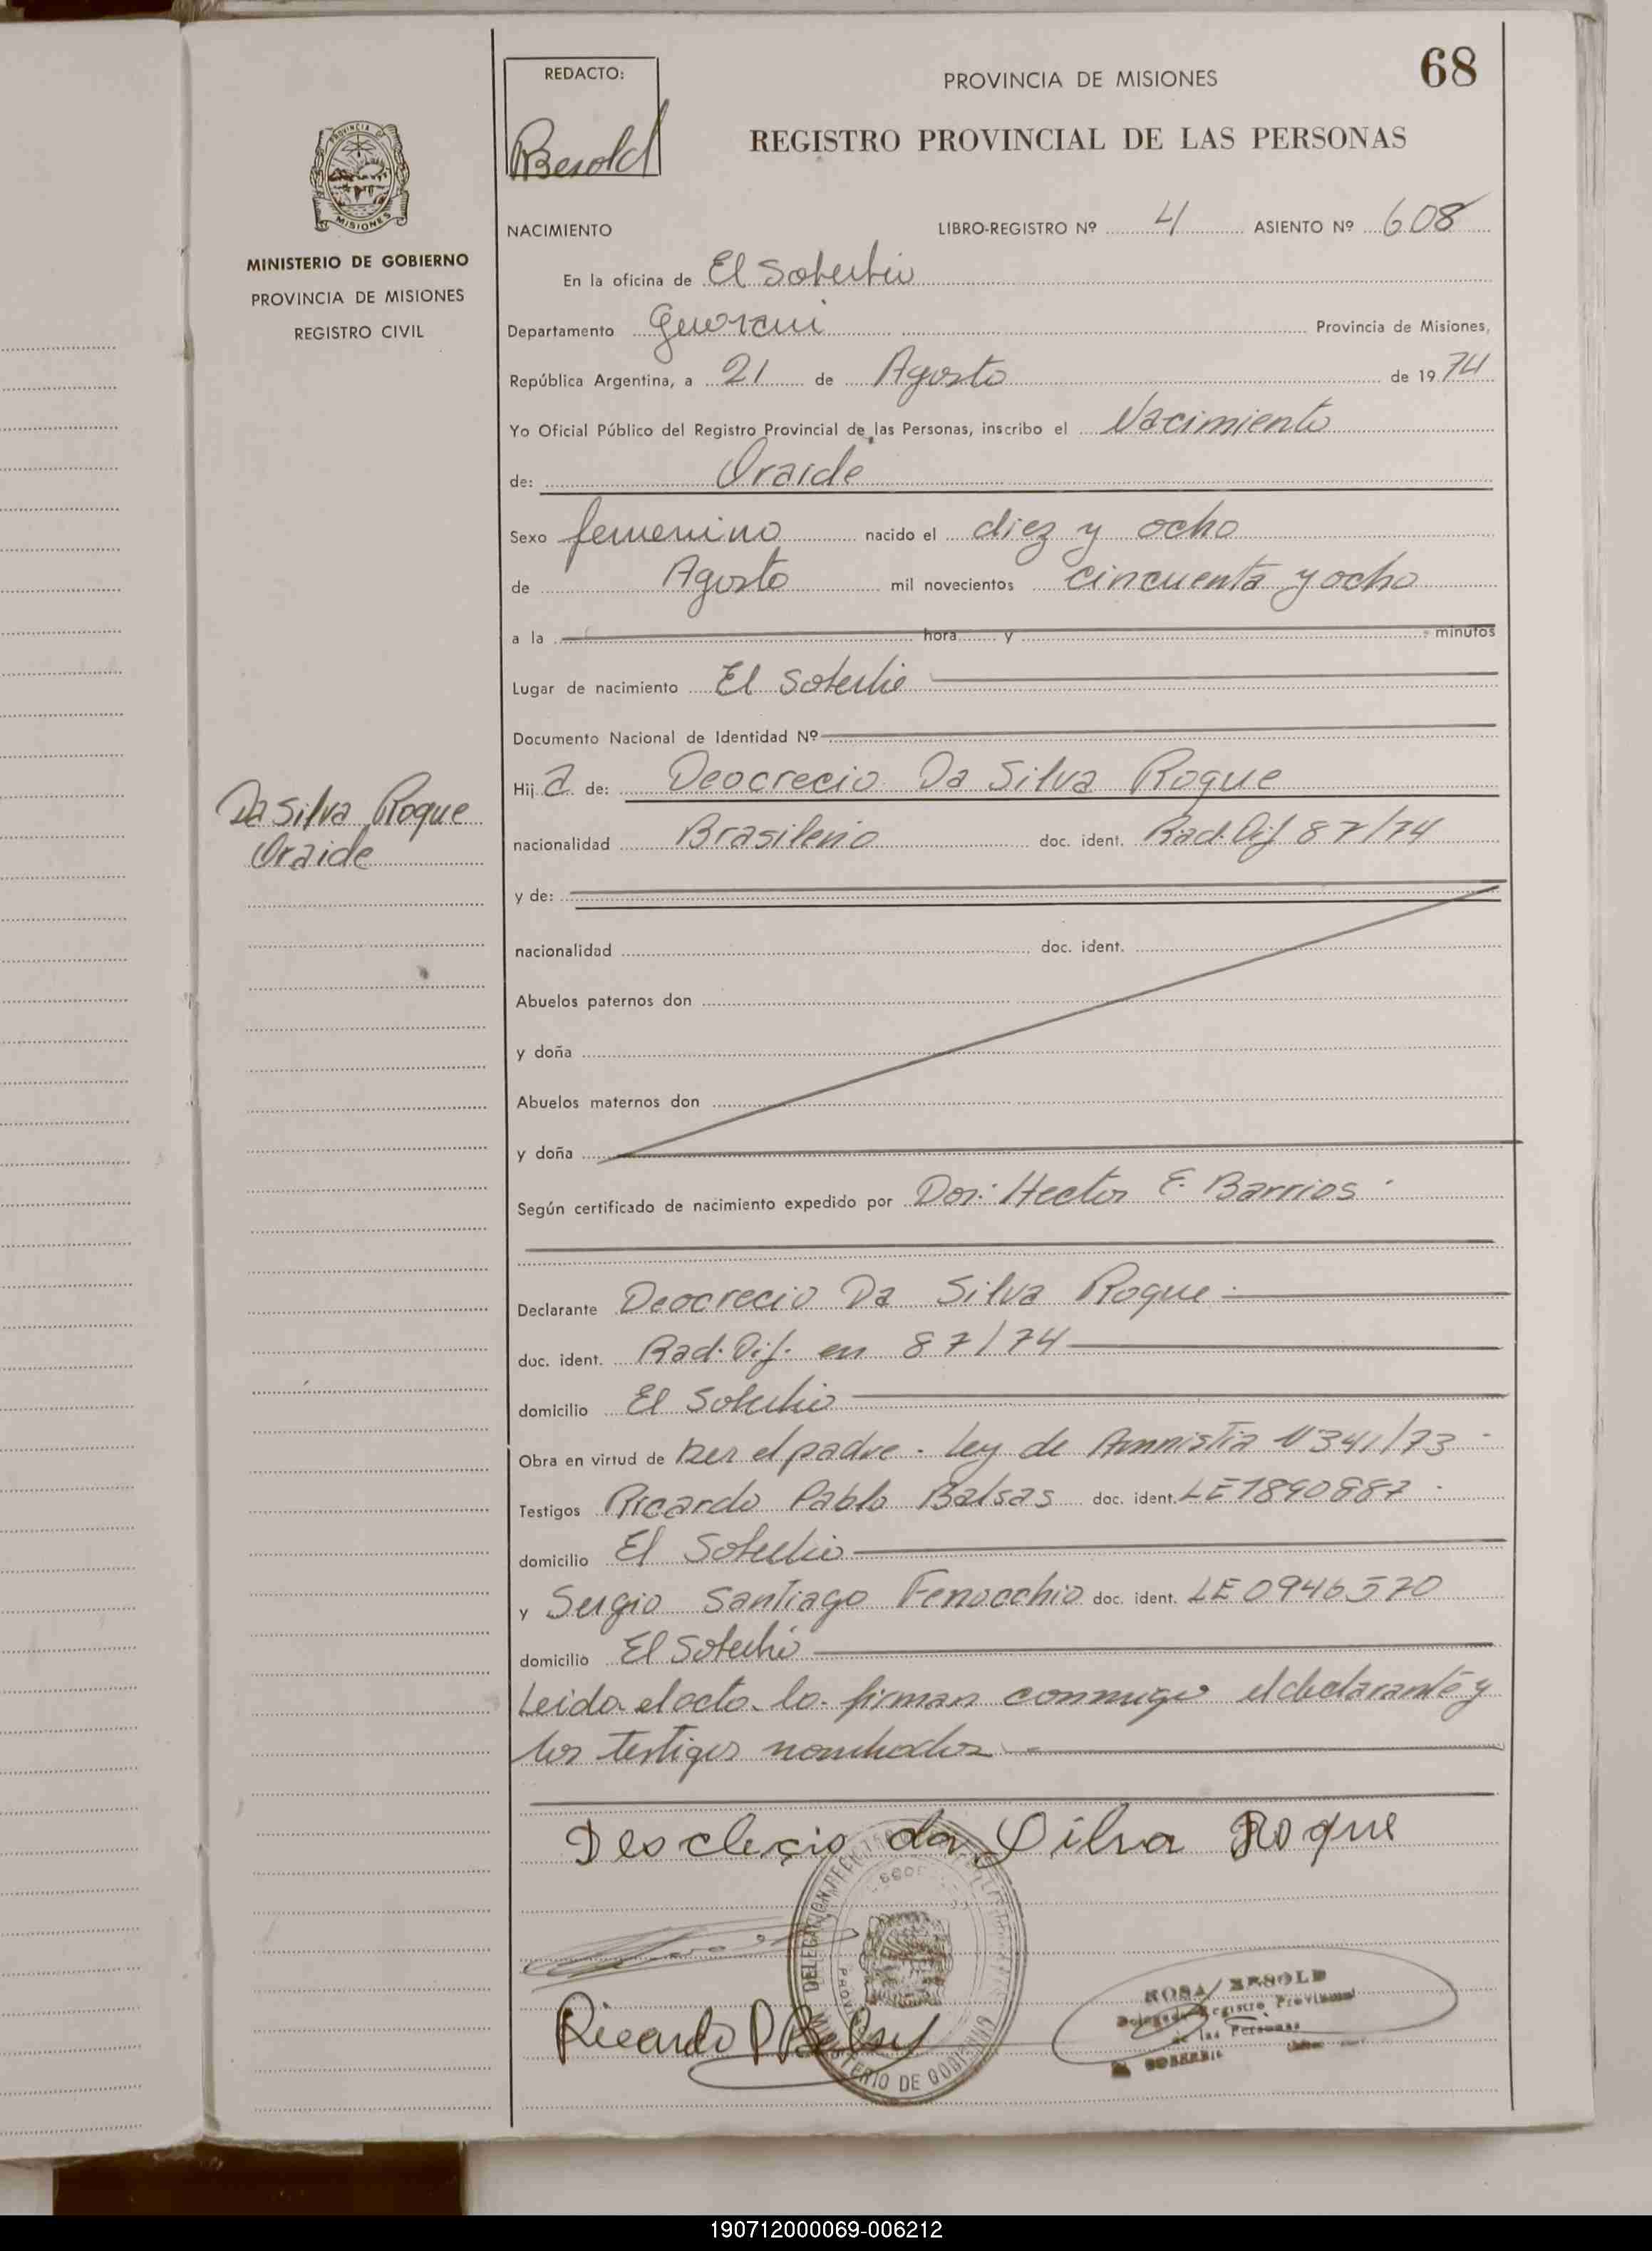 68
REDACTO:
Besold
PROVINCIA DE MISIONES
REGISTRO PROVINCIAL DE LAS PERSONAS
PROVINCIA DE
MISIONES
MINISTERIO DE GOBIERNO
PROVINCIA DE MISIONES
REGISTRO CIVIL
NACIMIENTO LIBRO-REGISTRO Nº 4 ASIENTO Nº 608
En la oficina de El Soberbio
Departamento Guarani Provincia de Misiones,
República Argentina, a 21 de Agosto de 1974
Yo Oficial Público del Registro Provincial de las Personas, inscribo el Nacimiento
de: Oraide
Sexo femenino nacido el diez y ocho
de Agosto mil novecientos cincuenta y ocho
a la hora y minutos
Lugar de nacimiento El Soberbio
Documento Nacional de Identidad Nº
Hija de: Deocrecio Da Silva Roque
Da Silva Roque
Oraide
nacionalidad Brasileño doc. ident. Rad. Dif 87/74
y de:
nacionalidad doc. ident.
Abuelos paternos don
y doña
Abuelos maternos don
y doña
Según certificado de nacimiento expedido por Dor: Hector E. Barrios
Declarante Deocrecio Da Silva Roque
doc. ident. Rad. Dif. en 87/74
domicilio El Soberbio
Obra en virtud de ser el padre - Ley de Amnistia Nº 341/73
Testigos Ricardo Pablo Balsas doc. ident. LE 7890887
domicilio El Soberbio
y Sergio Santiago Fenocchio doc. ident. LE 0946570
domicilio El Soberbio
Leida el acta la firman conmigo el declarante y
los testigos nombrados
Deocleçio da Silva Roque
Ricardo P Balsas
MINISTERIO DE GOBIERNO
ROSA BESOLD
Delegada Registro Provincial
de las Personas
EL SOBERBIO
190712000069-006212